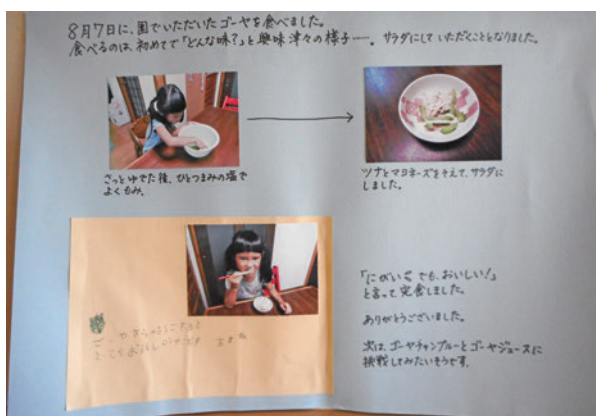 8月7日に、園でいただいたゴーヤを食べました。
食べるのは、初めてで「どんな味?」と興味津々の様子――。サラダにしていただくこととなりました。
さっとゆでた後、ひとつまみの塩で
よくもみ。
ツナとマヨネーズをそえて、サラダに
しました。
「にがい、でも、おいしい!」
と言って完食しました。
ありがとうございました。
次は、ゴーヤチャンプルーとゴーヤジュースに
挑戦してみたいそうです。